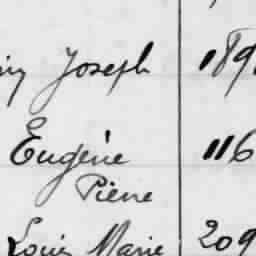 Joseph 189
Eugène 116
Pierre
Louis Marie 209